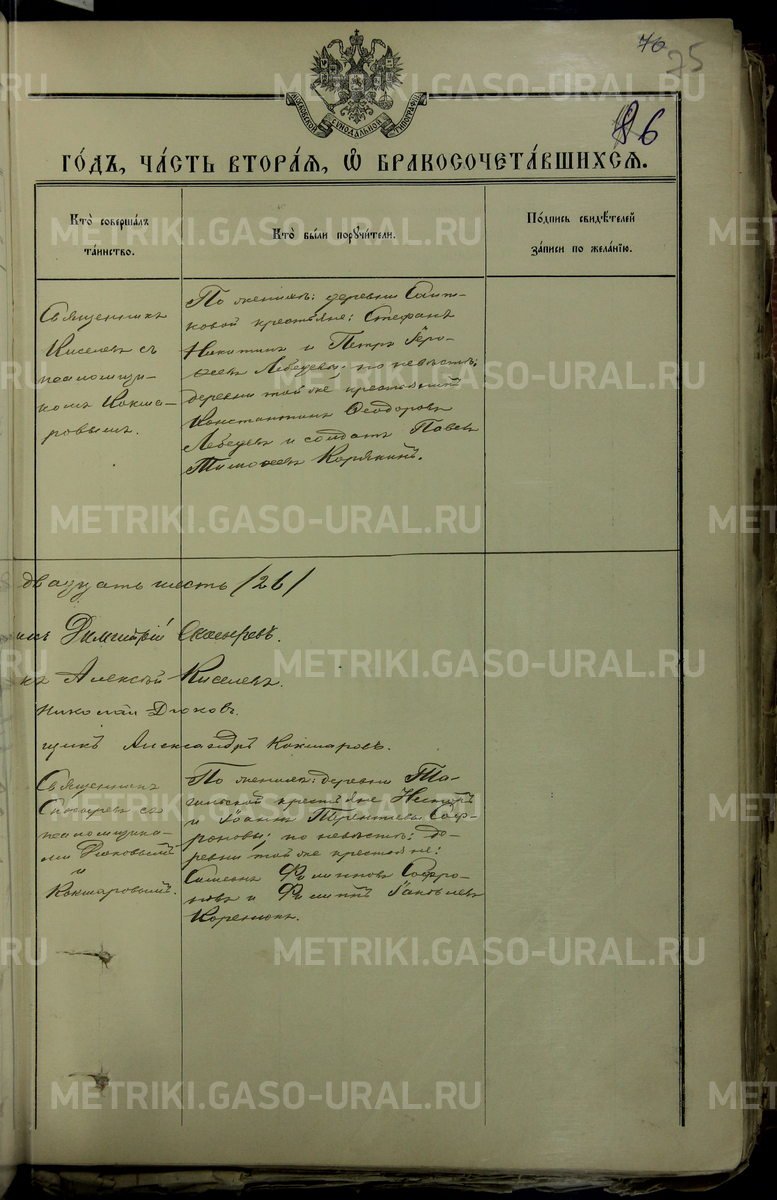 70
75
86
МОСКОВСКОЙ СѴНОДАЛЬНОЙ ТИПОГРАФІИ
ГО́ДЪ, ЧА́СТЬ ВТОРА́Я, Ѡ҆ БРАКОСОЧЕТА́ВШИХСЯ.
Кто̀ совершáлъ таи́нство.
Кто̀ бы́ли порꙋчи́тели.
По́дпись свидѣ́телей за́писи по жела́нїю.
Священникъ
Киселевъ съ
псаломщи-
комъ Кокша-
ровымъ.
По женихѣ: деревни
ковой крестьяне: Стефанъ
Никитинъ и Петръ Геро-
Лебедевы; по невѣстѣ:
деревни той же крестьянинъ
Константинъ Ѳеодоровъ
Лебедевъ и солдатъ Павелъ
Тимоѳеевъ Корякинъ.
двадцать шесть /26/
Димитрій
Алексѣй Киселевъ.
Николай Дюковъ.
Александръ Кокшаровъ.
Священникъ
съ
псаломщика-
ми Дюковымъ
и
Кокшаровымъ.
По женихѣ: деревни Та-
гильской крестьяне Несторъ
и Іоаннъ Терентьевы Соф-
роновы; по невѣстѣ: де-
ревни той же крестьяне:
Симеонъ Филипповъ Софро-
новъ и Филиппъ Іаковлевъ
METRIKI.GASO-URAL.RU